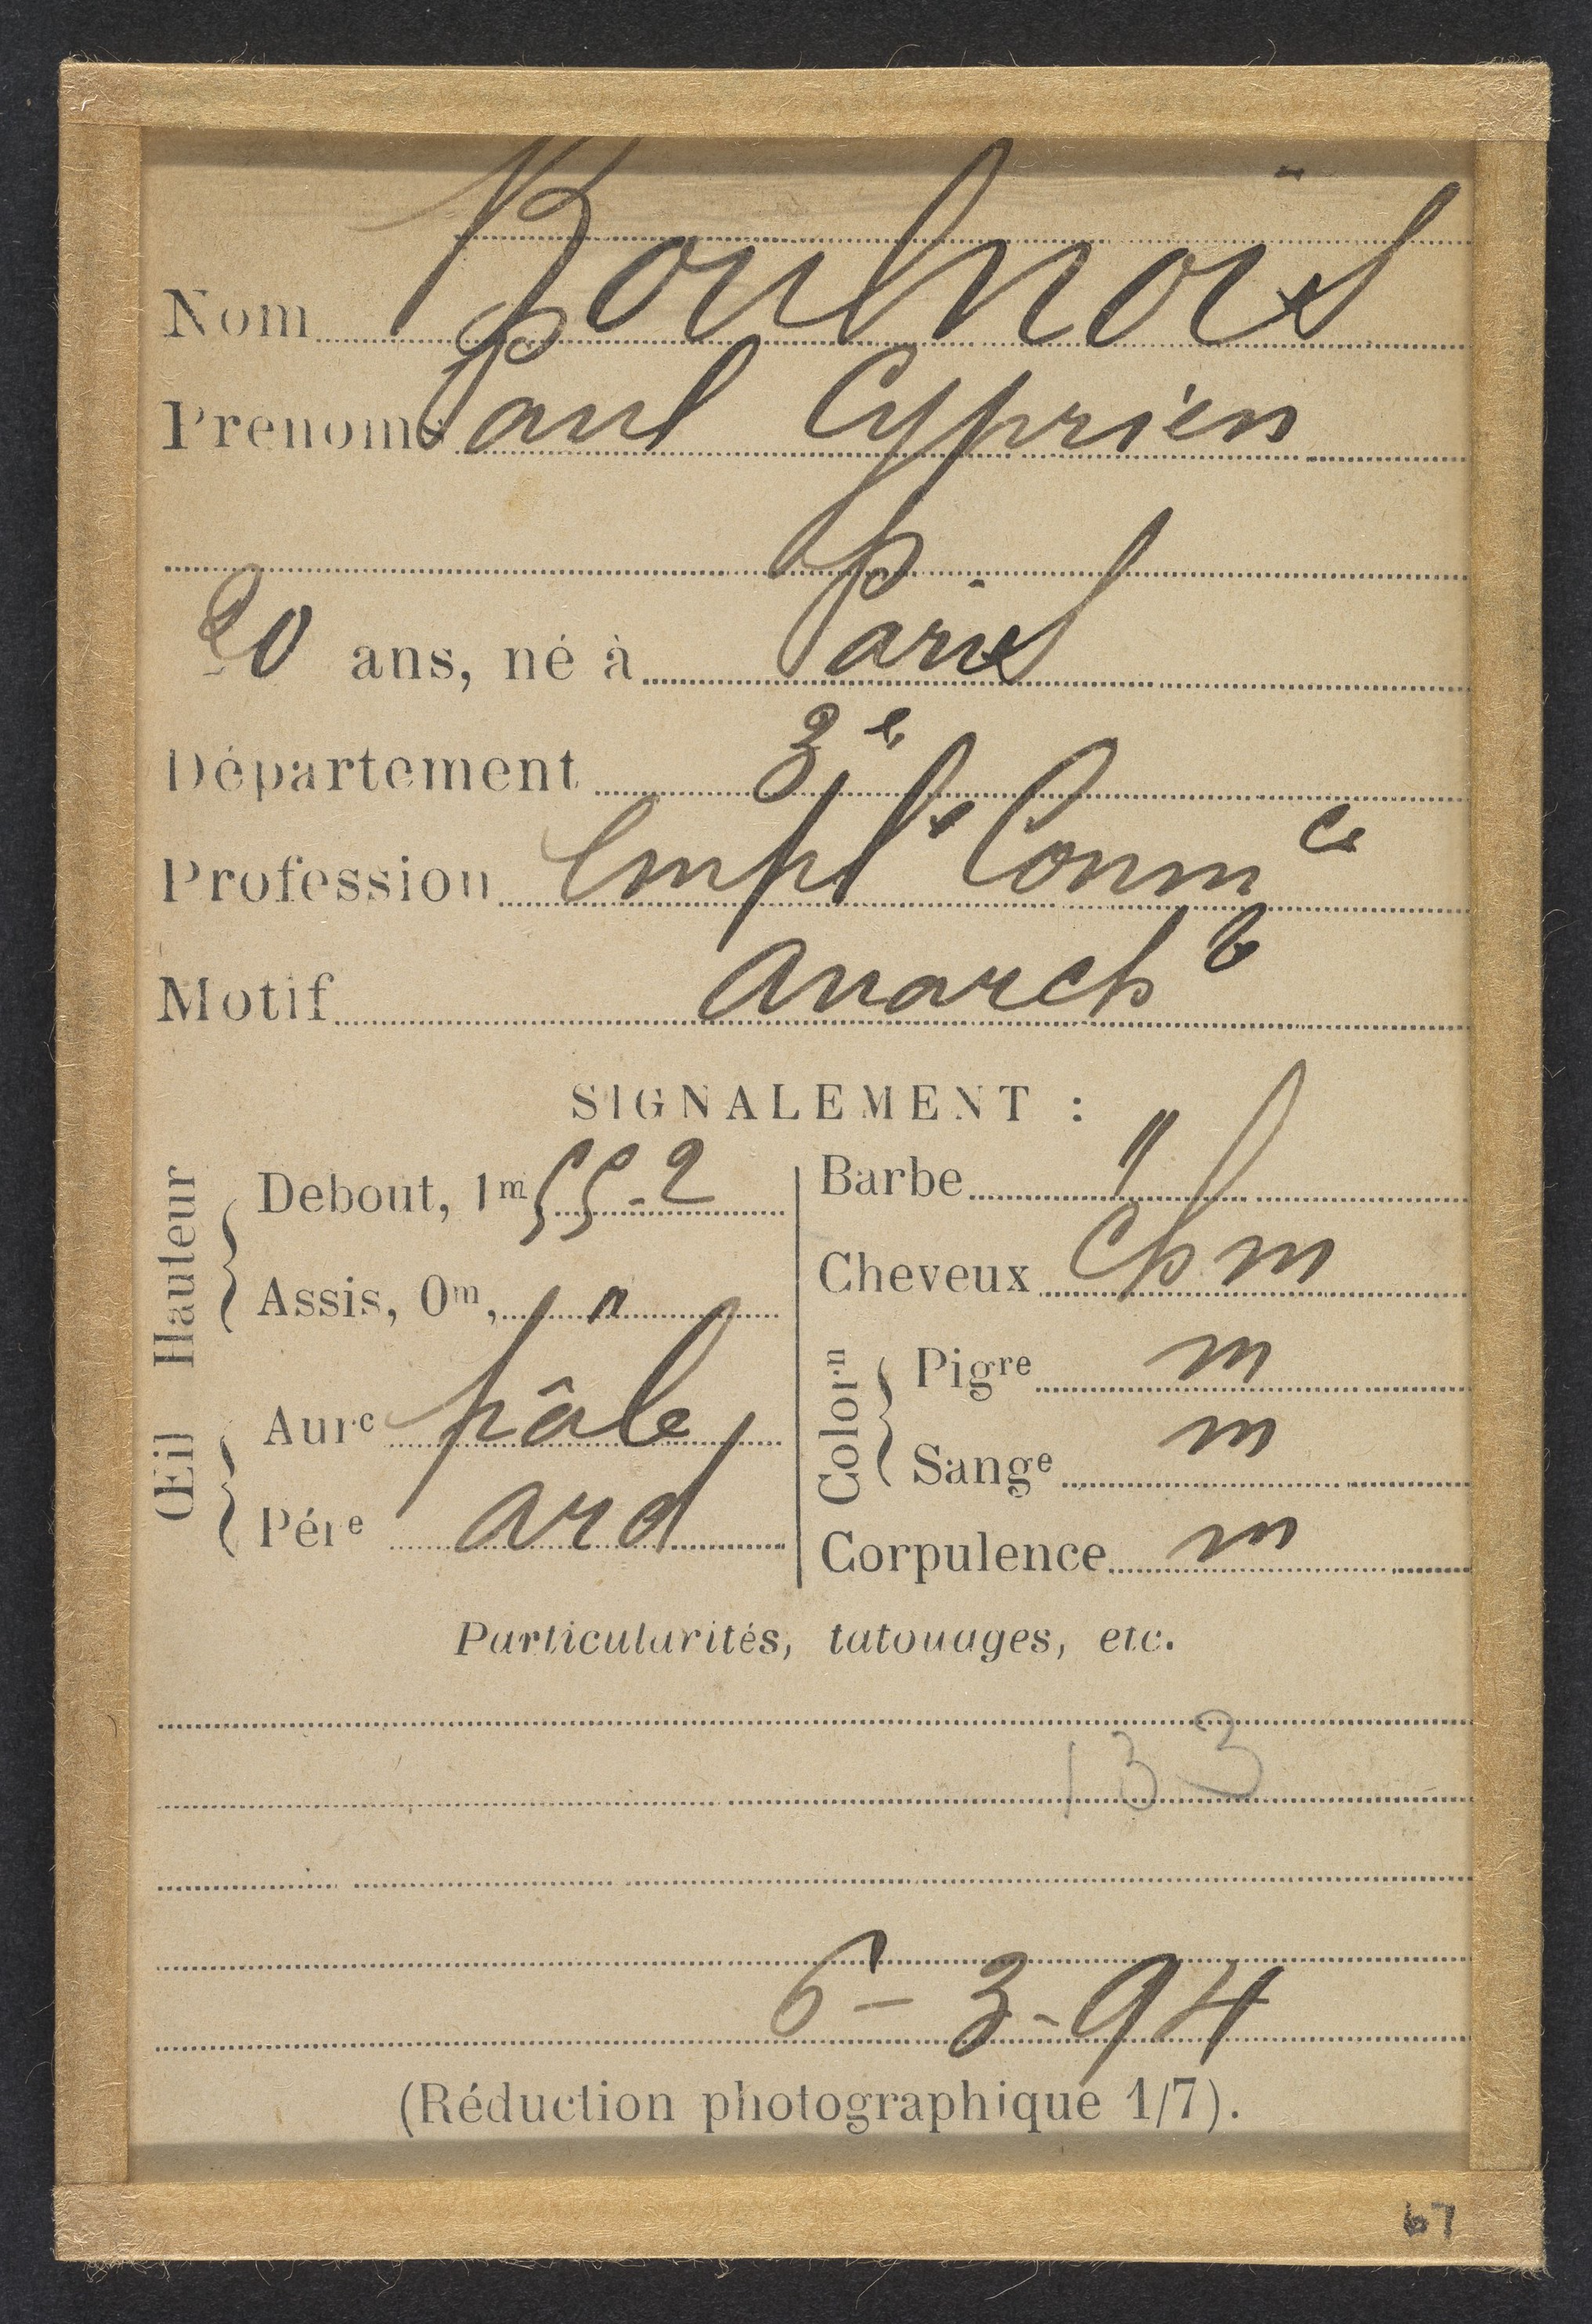 Nom Boulnois
Prénoms Paul Cyprien
20 ans, né à Paris
Département 3e
Profession Emplé Commce
Motif Anarche
SIGNALEMENT :
Hauteur
Debout, 1m 55-2
Assis, 0m, "
Œil
Aurc pâle
Pére ard
Barbe "
Cheveux ch m
Colorn
Pigre m
Sange m
Corpulence m
Particularités, tatouages, etc.
133
6-3-94
(Réduction photographique 1/7).
67